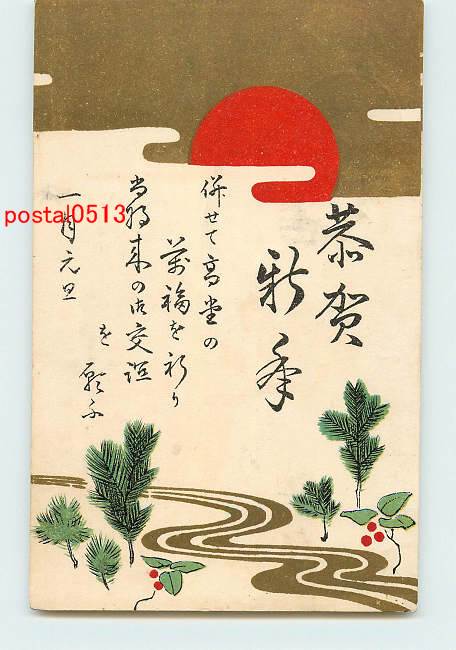 恭賀
新年
併せて高堂の
萬福を祈り
尚将来の御交誼
を願ふ
一月元旦
postal0513